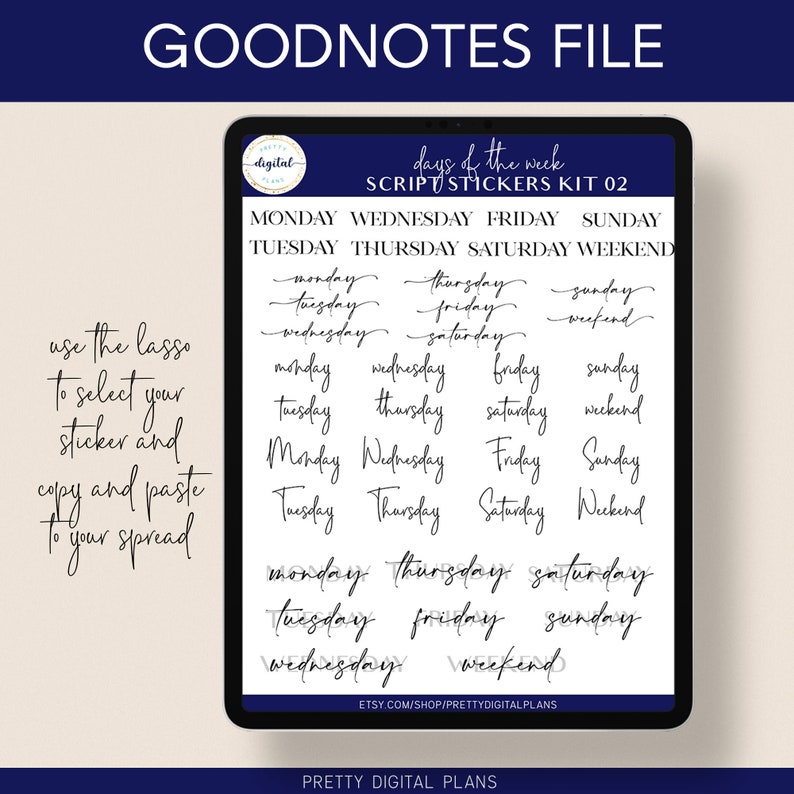 GOODNOTES FILE
PRETTY
digital
PLANS
days of the week
SCRIPT STICKERS KIT 02
MONDAY WEDNESDAY FRIDAY SUNDAY
TUESDAY THURSDAY SATURDAY WEEKEND
monday thursday sunday
tuesday friday weekend
wednesday saturday
monday wednesday friday sunday
tuesday thursday saturday weekend
Monday Wednesday Friday Sunday
Tuesday Thursday Saturday Weekend
MONDAY THURSDAY SATURDAY
monday thursday saturday
TUESDAY FRIDAY SUNDAY
tuesday friday sunday
WEDNESDAY WEEKEND
wednesday weekend
ETSY.COM/SHOP/PRETTYDIGITALPLANS
use the lasso
to select your
sticker and
copy and paste
to your spread
PRETTY DIGITAL PLANS